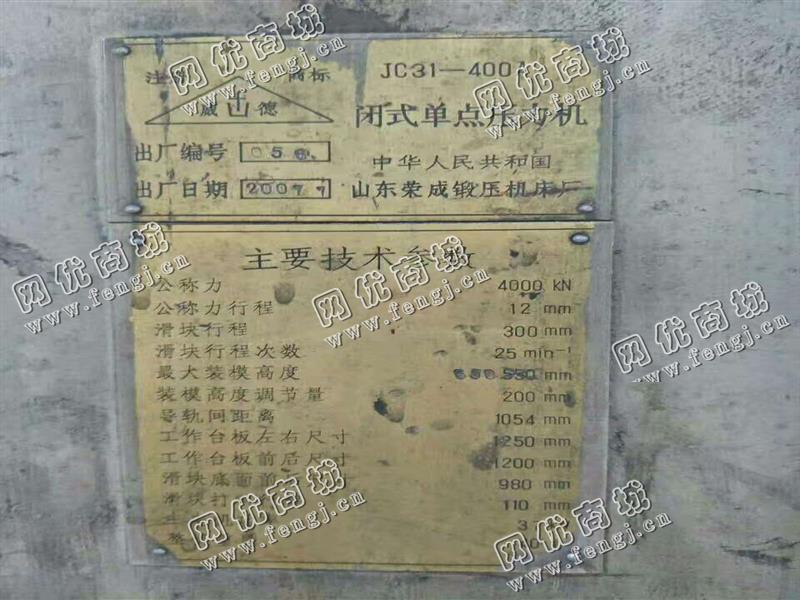 注 商标
JC31—400
威山德
闭式单点压力机
出厂编号 056
中华人民共和国
出厂日期 2007 7
山东荣成锻压机床厂
主要技术参数
公称力 4000 kN
公称力行程 12 mm
滑块行程 300 mm
滑块行程次数 25 min⁻¹
最大装模高度 550 mm
装模高度调节量 200 mm
导轨间距离 1054 mm
工作台板左右尺寸 1250 mm
工作台板前后尺寸 1200 mm
滑块底面前 980 mm
滑块打 110 mm
3
网优商城
www.fengj.cn
网优商城
www.fengj.cn
网优商城
www.fengj.cn
网优商城
www.fengj.cn
网优商城
www.fengj.cn
网优商城
www.fengj.cn
网优商城
www.fengj.cn
网优商城
www.fengj.cn